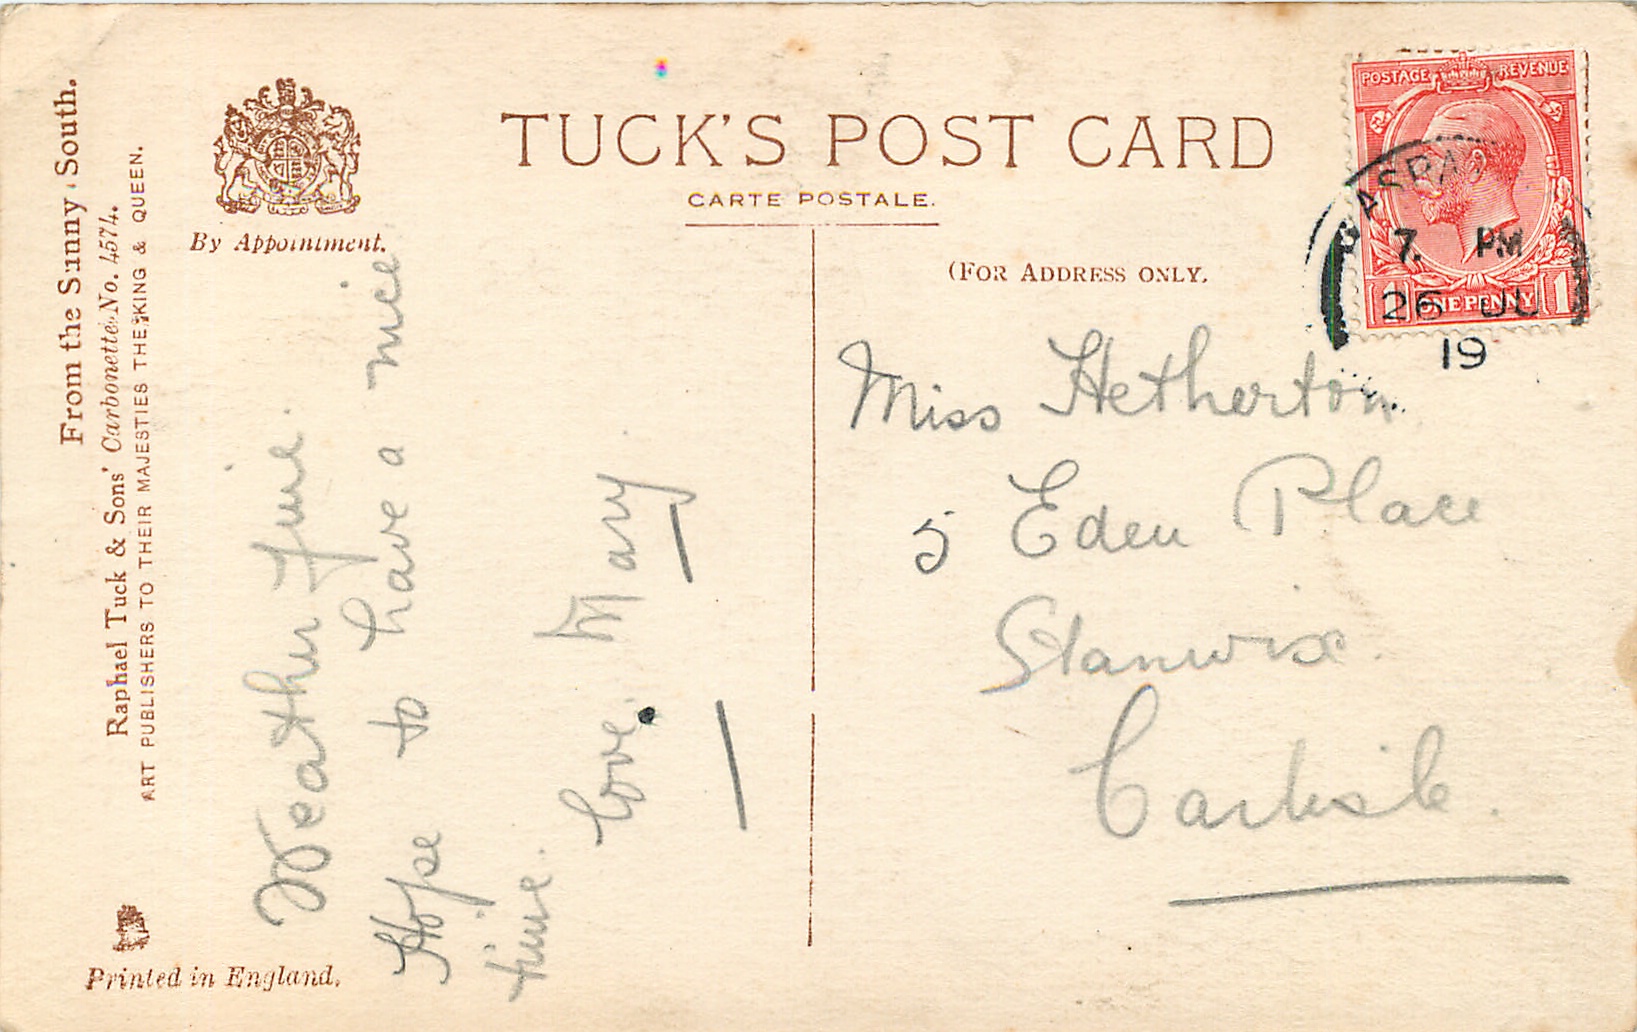 From the Sunny South.
Raphael Tuck & Sons' Carbonette No. 4574.
ART PUBLISHERS TO THEIR MAJESTIES THE KING & QUEEN.
Printed in England.
By Appointment.
TUCK'S POST CARD
CARTE POSTALE.
(FOR ADDRESS ONLY.
POSTAGE REVENUE
1 ONE PENNY 1
7. PM
26 JU
19
Weather fine.
Hope to have a nice
time.
love. Mary
Miss Hetherton
5 Eden Place
Stanwix.
Carlisle.